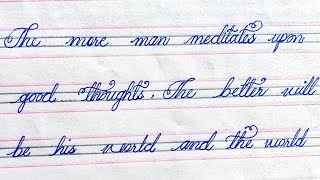 The more man meditates upon
good thoughts. The better will
be his world and the world